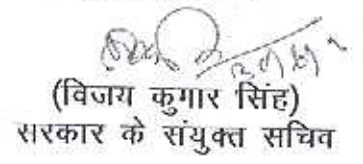 (विजय कुगार सिंह)
सरकार के संयुक्त सचिव